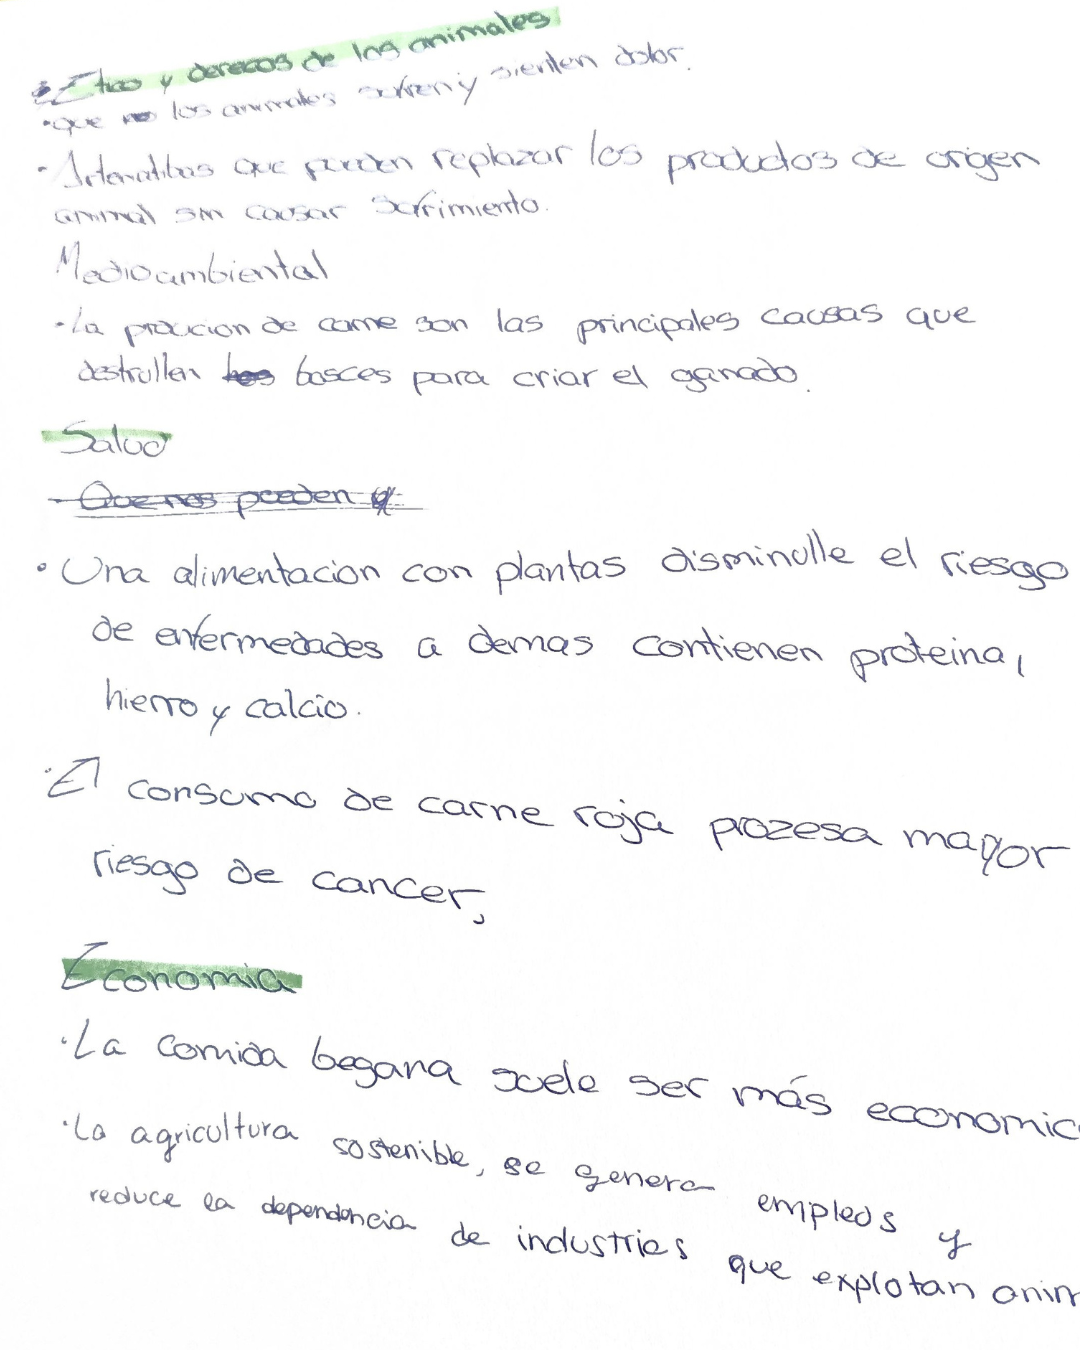 Etica y derecos de los animales
•que los animales sufren y sienten dolor.
•Artenatibas que pueden replazar los productos de origen
animal sin causar sufrimiento.
Medioambiental
•La proucion de carne son las principales causas que
destrullen bosces para criar el ganado.
Salud
- Que nos pueden
•Una alimentacion con plantas disminulle el riesgo
de enfermedades a demas contienen proteina,
hierro y calcio.
•El consumo de carne roja prozesa mayor
riesgo de cancer,
Economia
•La comida begana suele ser más economic
•La agricultura sostenible, se genera empleos y
reduce la dependencia de industries que explotan anim